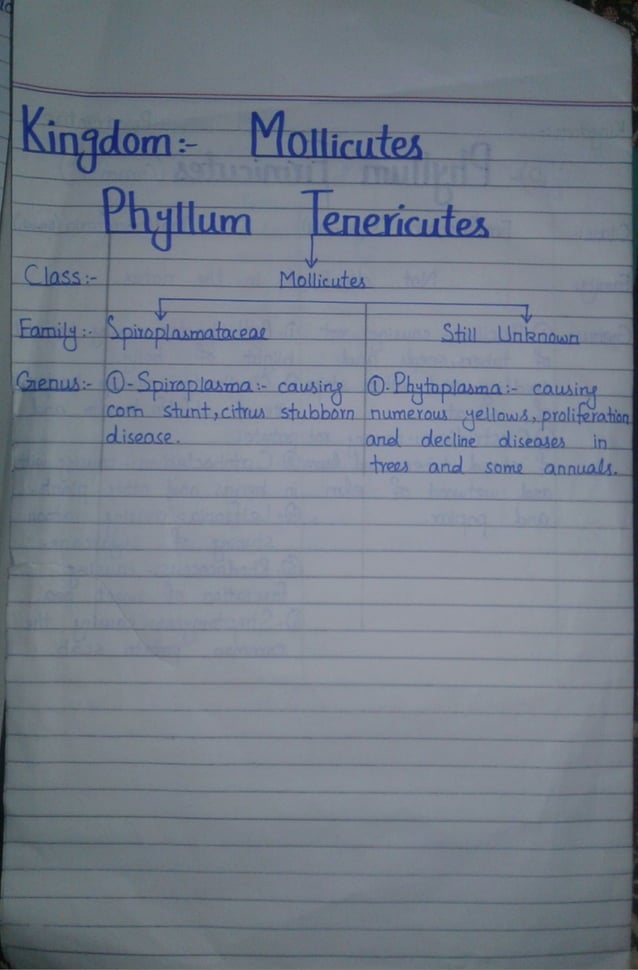 Kingdom:- Mollicutes
Phyllum Tenericutes
Class:- Mollicutes
Family:- Spiroplasmataceae Still Unknown
Genus:- ①-Spiroplasma:- causing
corn stunt, citrus stubborn
disease.
①-Phytoplasma:- causing
numerous yellows, proliferation
and decline diseases in
trees and some annuals.